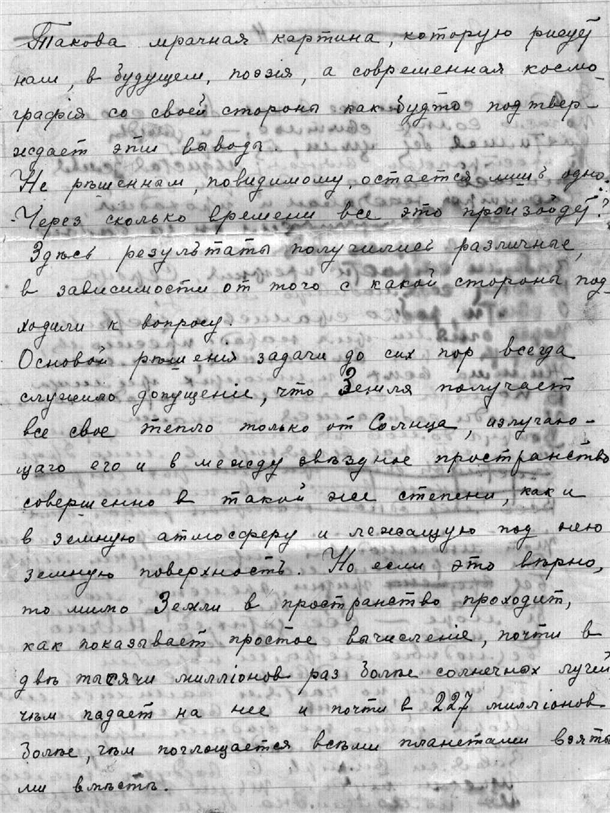 Такова мрачная картина, которую рисует
нам, в будущем, поэзія, а современная космо-
графія со своей стороны как будто подтвер-
ждает эти выводы.
Не рѣшенным, повидимому, остается лишь одно:
-Через сколько времени все это произойдет?
Здѣсь результаты получились различные,
в зависимости от того с какой стороны под
ходили к вопросу.
Основой рѣшенія задачи до сих пор всегда
служило допущеніе, что Земля получает
все свое тепло только от Солнца, излучаю-
щаго его и в между звѣздное пространство
совершенно в такой же степени, как и
в земную атмосферу и лежащую под нею
земную поверхность. Но если это вѣрно,
то мимо Земли в пространство проходит,
как показывает простое вычисленіе, почти в
двѣ тысячи милліонов раз болѣе солнечных лучей
чѣм падает на нее и почти в 227 милліонов
болѣе, чѣм поглощается всѣми планетами взяты
ми вмѣстѣ.